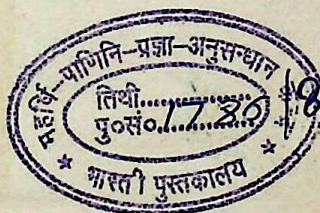 महर्षि-पाणिनि-प्रज्ञा-अनुसन्धान
तिथी..............
पु०सं०.1786.......
भारती पुस्तकालय